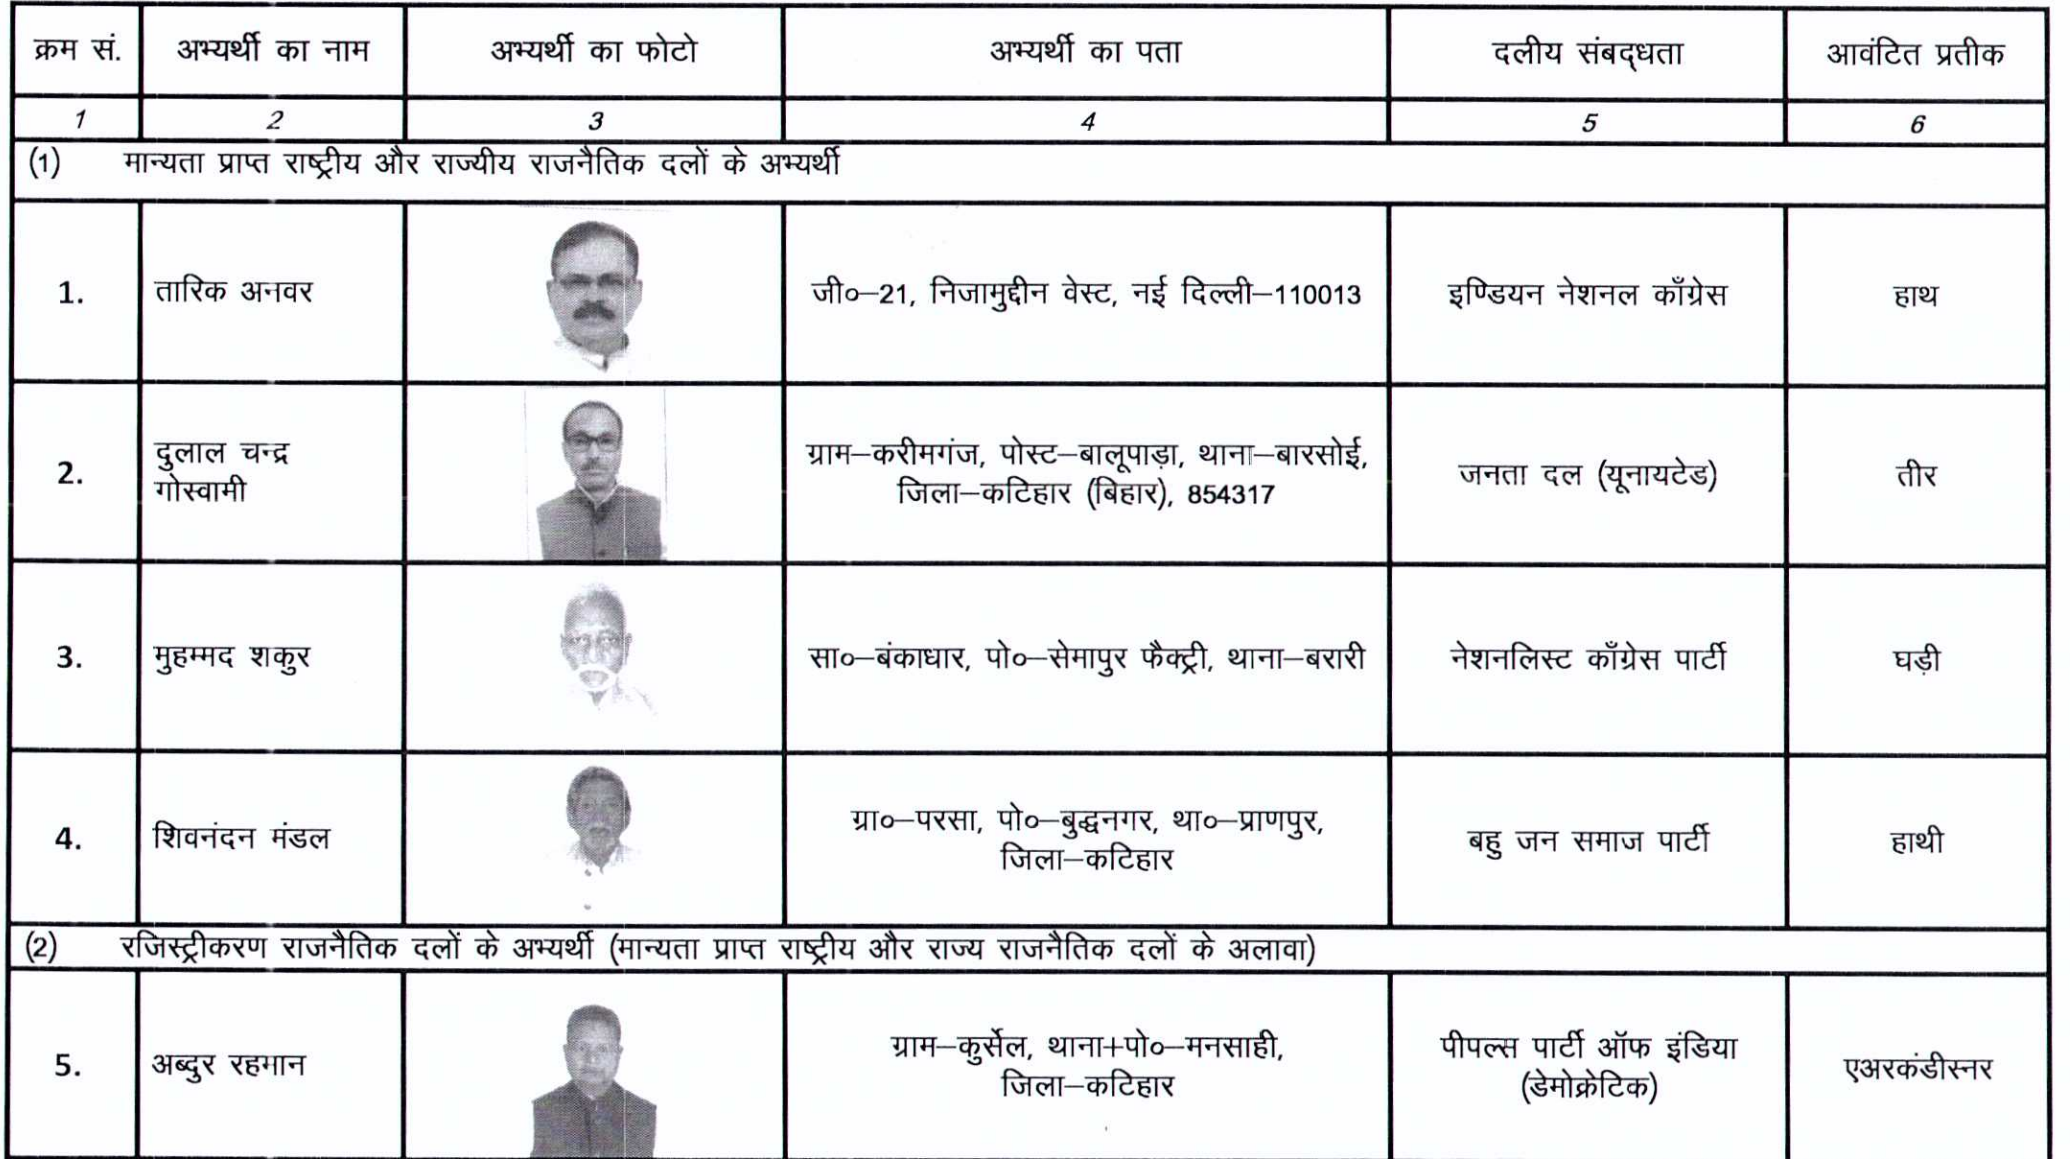 क्रम सं. अभ्यर्थी का नाम अभ्यर्थी का फोटो अभ्यर्थी का पता दलीय संबद्धता आवंटित प्रतीक
1 2 3 4 5 6
(1) मान्यता प्राप्त राष्ट्रीय और राज्यीय राजनैतिक दलों के अभ्यर्थी
1. तारिक अनवर जी०–21, निजामुद्दीन वेस्ट, नई दिल्ली–110013 इण्डियन नेशनल काँग्रेस हाथ
2. दुलाल चन्द्र
गोस्वामी
ग्राम–करीमगंज, पोस्ट–बालूपाड़ा, थाना–बारसोई,
जिला–कटिहार (बिहार), 854317
जनता दल (यूनायटेड) तीर
3. मुहम्मद शकुर सा०–बंकाधार, पो०–सेमापुर फैक्ट्री, थाना–बरारी नेशनलिस्ट काँग्रेस पार्टी घड़ी
4. शिवनंदन मंडल
ग्रा०–परसा, पो०–बुद्धनगर, था०–प्राणपुर,
जिला–कटिहार
बहु जन समाज पार्टी हाथी
(2) रजिस्ट्रीकरण राजनैतिक दलों के अभ्यर्थी (मान्यता प्राप्त राष्ट्रीय और राज्य राजनैतिक दलों के अलावा)
5. अब्दुर रहमान
ग्राम–कुर्सेल, थाना+पो०–मनसाही,
जिला–कटिहार
पीपल्स पार्टी ऑफ इंडिया
(डेमोक्रेटिक)
एअरकंडीस्नर